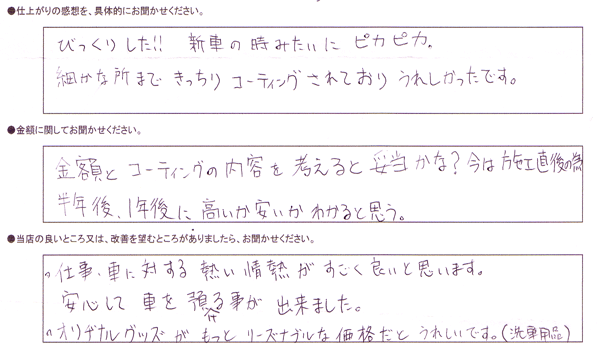 ●仕上がりの感想を、具体的にお聞かせください。
びっくりした!! 新車の時みたいに ピカピカ。
細かな所まで きっちり コーティング されており うれしかったです。
●金額に関してお聞かせください。
金額と コーティングの内容を 考えると 妥当 かな? 今は 施工直後の為
半年後、1年後に 高いか安いか わかると思う。
●当店の良いところ又は、改善を望むところがありましたら、お聞かせください。
仕事、車に対する 熱い 情熱が すごく 良いと思います。
安心して 車を 預ける事が 出来ました。
オリヂナルグッズ が もっと リーズナブルな 価格だと うれしいです。(洗車用品)